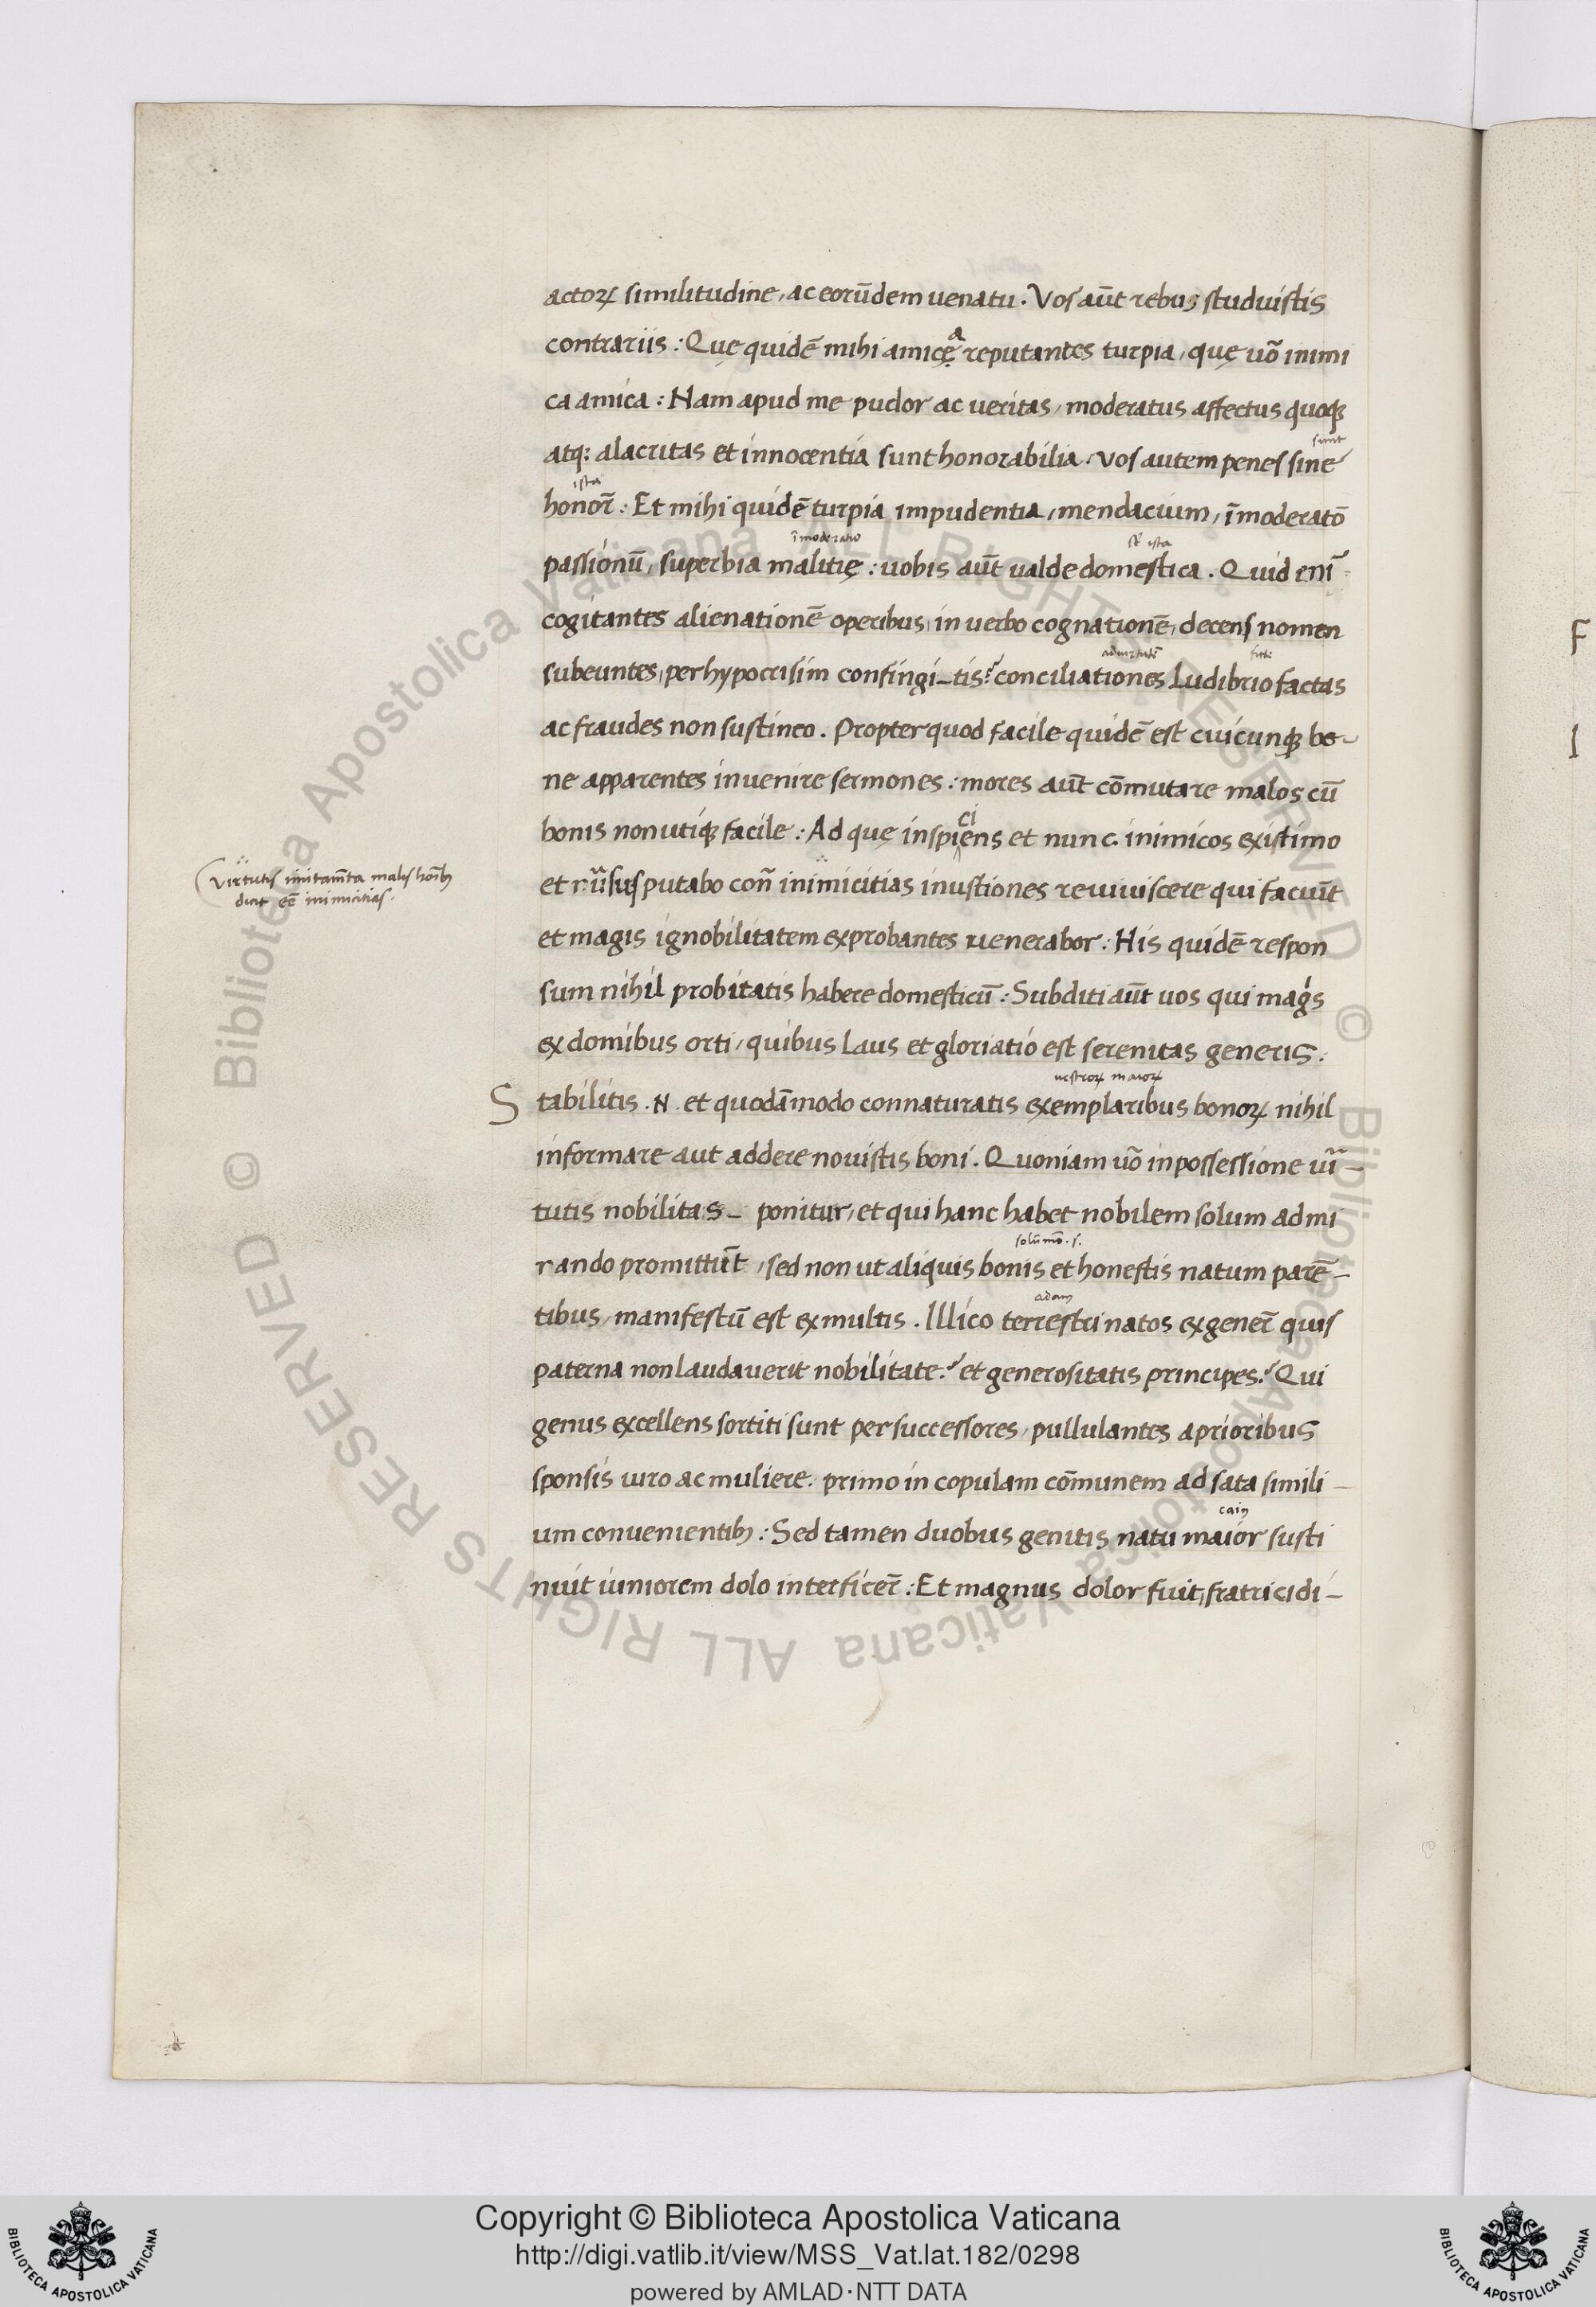 actoꝝ similitudine, ac eorūdem uenatu. Vos aūt rebus studuistis
contrariis: Quę quidē mihi amicę a reputantes turpia, quę uō inimi
ca amica: Nam apud me pudor ac ueritas, moderatus affectus quoqꝫ
sunt
atq: alacritas et innocentia sunt honorabilia. vos autem penes sine
ista
honor̄: Et mihi quidē turpia impudentia, mendacium, īmoderatō
īmoderatio st̄ ista
passionū, superbia malitię: uobis aūt ualde domestica. Quid enī
cogitantes alienationē operibus, in uerbo cognationē, decens nomen
ad uirtutē
subeuntes, per hypocrisim confingi_tis? conciliationes Ludibrio factas
ac fraudes non sustineo. Propter quod facile quidē est cuicunqꝫ bo-
ne apparentes inuenire sermones: mores aūt cōmutare malos cū
ci
bonis non utiqꝫ facile: Ad quę inspiens et nunc inimicos existimo
et rūsus putabo con̄ inimicitias inustiones reuiuiscere qui faciūt
Virtutis imitam̄ta malis hoībꝫ
dicit eē inimicitias.
et magis ignobilitatem exprobantes uenerabor: His quidē respon
sum nihil probitatis habere domesticū: Subditi aūt uos qui magis
ex domibus orti, quibus Laus et gloriatio est serenitas generis:
uestroꝝ maioꝝ
Stabilitis .N. et quodāmodo connaturatis exemplaribus bonoꝝ nihil
informare aut addere nouistis boni. Quoniam uō in possessione uī-
tutis nobilitas_ ponitur, et qui hanc habet nobilem solum admi
solūmō .s.
rando promittūt, sed non ut aliquis bonis et honestis natum parē-
adam
tibus, manifestū est ex multis. Illico terrestri natos ex gener̄ quis
paterna non laudauerit nobilitate? et generositatis principes? Qui
genus excellens sortiti sunt per successores, pullulantes a prioribus
sponsis uiro ac muliere. primo in copulam cōmunem ad sata simili-
cain
um conuenientibꝫ: Sed tamen duobus genitis natu maior susti
nuit iuniorem dolo interficer̄: Et magnus dolor fuit, fratricidi-
F
I
© Biblioteca Apostolica Vaticana ALL RIGHTS RESERVED © Biblioteca Apostolica Vaticana ALL RIGHTS RESERVED
Copyright © Biblioteca Apostolica Vaticana
http://digi.vatlib.it/view/MSS_Vat.lat.182/0298
powered by AMLAD·NTT DATA
BIBLIOTECA APOSTOLICA VATICANA
BIBLIOTECA APOSTOLICA VATICANA